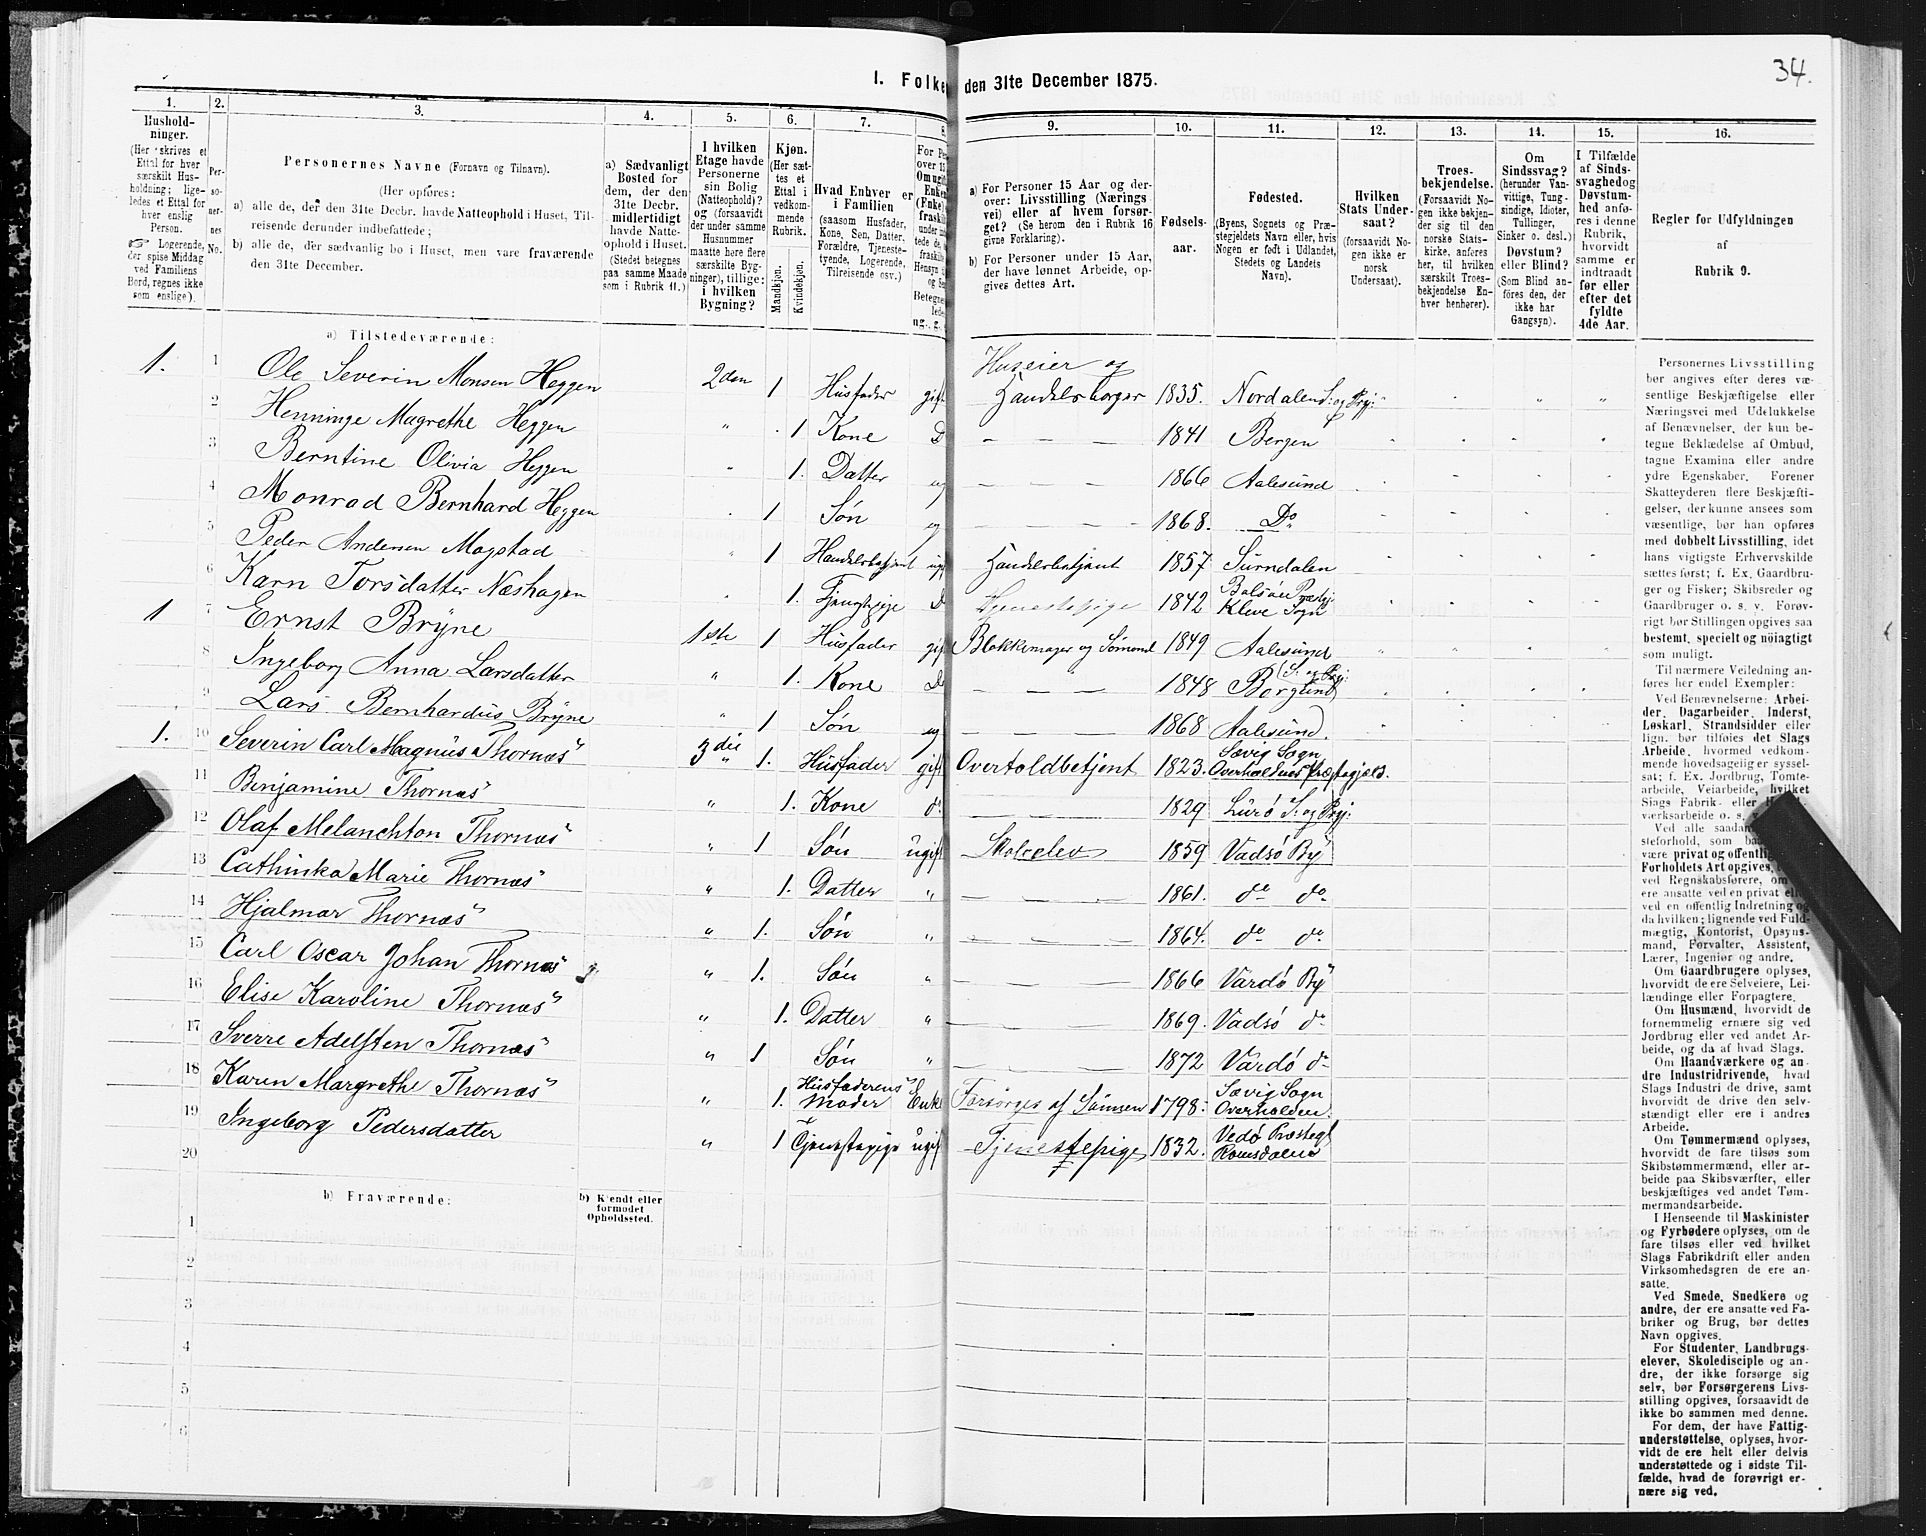 34.
I. Folke
den 31te December 1875.
1. 2. 3. 4. 5. 6. 7. 8. 9. 10. 11. 12. 13. 14. 15. 16.
Hushold-
ninger.
(Her skrives et
Ettal for hver
særskilt Hus-
holdning; lige-
ledes et Ettal for
hver enslig
Person.
Logerende,
der spise Middag
ved Familiens
Bord, regnes ikke
som enslige).
Per-
so-
ner-
nes
No.
Personernes Navne (Fornavn og Tilnavn).
(Her opføres:
a) alle de, der den 31te Decbr. havde Natteophold i Huset, Til-
reisende derunder indbefattede;
b) alle de, der sædvanlig bo i Huset, men vare fraværende
den 31te December.
a) Sædvanligt
Bosted for
dem, der den
31te Decbr.
midlertidigt
havde Natte-
ophold i Huset.
(Stedet betegnes
paa samme Maade
som i Rubrik 11.)
I hvilken
Etage havde
Personerne
sin Bolig
(Natteophold)?
og (forsaavidt
der under samme
Husnummer
maatte høre flere
særskilte Byg-
ninger), tillige:
i hvilken
Bygning?
Kjøn.
(Her sæt-
tes et
Ettal i
vedkom-
mende
Rubrik.
Mandkjøn.
Kvindekjøn.
Hvad Enhver er
i Familien
(saasom Husfader,
Kone, Søn, Datter,
Forældre, Tjeneste-
tyende, Logerende,
Tilreisende osv.)
a) For Personer 15 Aar og der-
over: Livsstilling (Nærings
vei) eller af hvem forsør-
get? (Se herom den i Rubrik 16
givne Forklaring).
b) For Personer under 15 Aar,
der have lønnet Arbeide, op-
gives dettes Art.
Fødsels-
aar.
Fødested.
(Byens, Sognets og Præ-
stegjeldets Navn eller, hvis
Nogen er født i Udlandet,
Stedets og Landets
Navn).
Hvilken
Stats Under-
saat?
(forsaavidt No-
gen ikke er
norsk
Undersaat).
Troes-
bekjendelse.
(Forsaavidt No-
gen ikke bekjen-
der sig til den
norske Stats-
kirke, anføres
her, til hvilken
særskilt Troes-
bekjendelse En-
hver henhører).
Om
Sindssvag?
(herunder Van-
vittige, Tung-
sindige, Idioter,
Tullinger,
Sinker o. desl.)
Døvstum?
eller Blind?
(Som Blind an-
føres den, der
ikke har
Gangsyn).
I Tilfælde
af Sinds-
svaghed og
Døvstum-
hed anfø-
res i denne
Rubrik,
hvorvidt
samme er
indtraadt
før eller
efter det
fyldte
4de Aar.
Regler for Udfyldningen
af
Rubrik 9.
a) Tilstedeværende:
1. 1 Ole Severin Monsen Heggen 2den 1 Husfader gift Huseier og Handelsborger 1835. Nordalen S: og Prj:
2 Henninge Magrethe Heggen " 1 Kone D — — — 1841 Bergen
3 Berntine Olivia Heggen " 1. Datter ug — — — 1866 Aalesund
4 Monrad Bernhard Heggen 1 Søn ug — — — 1868. Do
5 Peder Andersen Magstad " 1 Handelsbetjent ug Handelsbetjent 1857 Surndalen
6 Karn Torsdatter Næshagen 1. D 1842 Kleve Sogn
1 7 Ernst Bryne 1ste 1 Husfader gift Blokkemager og Sømand 1849 Aalesund
8 Ingeborg Anna Larsdatter " 1. Kone D " 1848 Borgund (S: og Prj:
9 Lars Bernhardus Bryne " 1 Søn ug — — — 1868 Aalesund.
1. 10 Severin Carl Magnus Thornæs 3die 1. Husfader gift Overtoldbetjent 1823. Sævig Sogn Overhaldnes Præstegjeld.
11 Benjamine Thornæs " 1. Kone do — — — 1829 Lurø S: og Prj:
12 Olaf Melanchton Thornæs " 1 Søn ugift Skoleelev 1859 Vadsø By
13 Cathinka Marie Thornæs " 1. Datter " — — — 1861. do do
14 Hjalmar Thornæs " 1. Søn " — — — 1864. do do
15 Carl Oscar Johan Thornæs " 1. Søn " — — — 1866 Vardø By
16 Elise Karoline Thornæs " 1. Datter " — — — 1869. Vadsø do
17 Sverre Adelsten Thornæs " 1 Søn " — — — 1872 Vardø do
18 Karen Margrethe Thornæs " 1. Husfaderens Moder Enke Forsørges af Sønnen 1798. Sævig Sogn Overhalden.
19 Ingeborg Pedersdatter " 1 Tjenestepige ugift Tjenestepige 1832. Vedø Præstegj Romsdalen
20
b) Fraværende:
b) Kjendt eller
formodet
Opholdssted.
1
2
3
4
5
6
Personernes Livsstilling
bør angives efter deres væ-
sentlige Beskjæftigelse eller
Næringsvei med Udelukkelse
af Benævnelser, der kun be-
tegne Beklædelse af Ombud,
tagne Examina eller andre
ydre Egenskaber. Forener
Skatteyderen flere Beskjæfti-
gelser, der kunne ansees som
væsentlige, bør han opføres
med dobbelt Livsstilling, idet
hans vigtigste Erhvervskilde
sættes først; f. Ex. Gaardbru-
ger og Fisker; Skibsreder og
Gaardbruger o. s. v. Forøv-
rigt bør Stillingen opgives saa
bestemt, specielt og nöiagtigt
som muligt.
Til nærmere Veiledning an-
føres her endel Exempler:
Ved Benævnelserne: Arbei-
der, Dagarbeider, Inderst,
Løskarl, Strandsidder eller
lign. bør tilføies det Slags
Arbeide, hvormed vedkom-
mende hovedsagelig er syssel-
sat; f. Ex. Jordbrug, Tomte-
arbeide, Veiarbeide, hvilket
Slags Fabrik- eller
værksarbeide o. s.
Ved alle saadan
steforhold, som
være privat og offentlig,
Forholdets Art opgives,
ved Regnskabsførere, om
ere ansatte ved en privat el
ved en offentlig Indretning og
da hvilken; lignende ved Fuld-
mægtig, Kontorist, Opsyns-
mand, Forvalter, Assistent,
Lærer, Ingeniør og andre.
Om Gaardbrugere oplyses,
hvorvidt de ere Selveiere, Lei-
lændinge eller Forpagtere.
Om Husmænd, hvorvidt de
fornemmelig ernære sig ved
Jordbrug eller ved andet Ar-
beide, og da af hvad Slags.
Om Haandværkere og an-
dre Industridrivende, hvad
Slags Industri de drive, samt
hvorvidt de drive den selv-
stændigt eller ere i andres
Arbeide.
Om Tømmermænd oplyses,
hvorvidt de fare tilsøs som
Skibstømmermænd, eller ar-
beide paa Skibsværfter, eller
beskjæftiges ved andet Tøm-
mermandsarbeide.
I Henseende til Maskinister
og Fyrbødere oplyses, om de
fare tilsøs eller ved hvilket
Slags Fabrikdrift eller anden
Virksomhedsgren de ere an-
satte.
Ved Smede, Snedkere og
andre, der ere ansatte ved Fa-
briker og Brug, bør dettes
Navn opgives.
For Studenter, Landbrugs-
elever, Skoledisciple og an-
dre, der ikke forsørge sig
selv, bør Forsørgerens Livs-
stilling opgives, forsaavidt de
ikke bo sammen med denne.
For dem, der have Fattig-
understøttelse, oplyses, hvor-
vidt de ere helt eller delvis
understøttede og i sidste Til-
fælde, hvad de forøvrigt er-
nære sig ved.